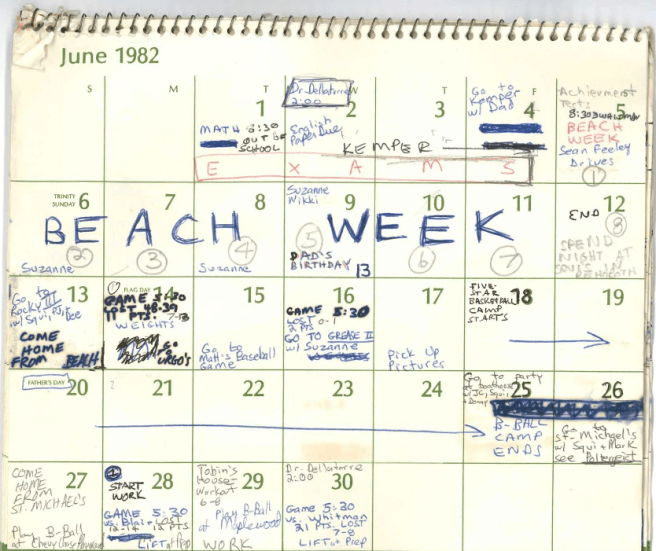 June 1982
S M T W T F S
1
MATH 8:30
OUT OF
SCHOOL
Dr. Dellatorre
2:00
2
English
Paper Due
3
KEMPER
Go to
Kemper
w/ Dad
4
E X A M S
Achievement
Tests
8:30
5
BEACH
WEEK
Sean Feeley
Drives
1
TRINITY
SUNDAY
6
Suzanne
2
7
3
8
Suzanne
4
BEACH WEEK
Suzanne
Nikki
9
5
DAD'S
BIRTHDAY
13
10
6
11
7
END
12
8
SPEND
NIGHT AT
REHOBOTH
13
Go to
Rocky III
w/ Squi, PJ,
COME
HOME
FROM BEACH
FLAG DAY
14
GAME 5:30
LOST 48-39
11 PTS.
WEIGHTS
Go to
15
Go to
Matt's Baseball
Game
16
GAME 5:30
LOST
2 PTS
GO TO GREASE II
w/ Suzanne
17
Pick Up
Pictures
FIVE-
STAR
BASKETBALL
CAMP
STARTS
18
19
FATHER'S DAY
20
21
22
23
24
Go to party
25
B-BALL
CAMP
ENDS
26
Go to
St. Michael's
w/ Squi + Mark
see Poltergeist
27
COME
HOME
FROM
ST. MICHAEL'S
Play B-Ball
at Chevy Chase
28
START
WORK
GAME 5:30
vs. Blair - LOST
12 PTS
LIFT at Prep
Tobin's
House-
Workout
6-8
29
Play B-Ball
at Maplewood
WORK
Dr. Dellatorre
2:00
30
Game 5:30
vs. Whitman
21 PTS. LOST
7-8
LIFT at Prep